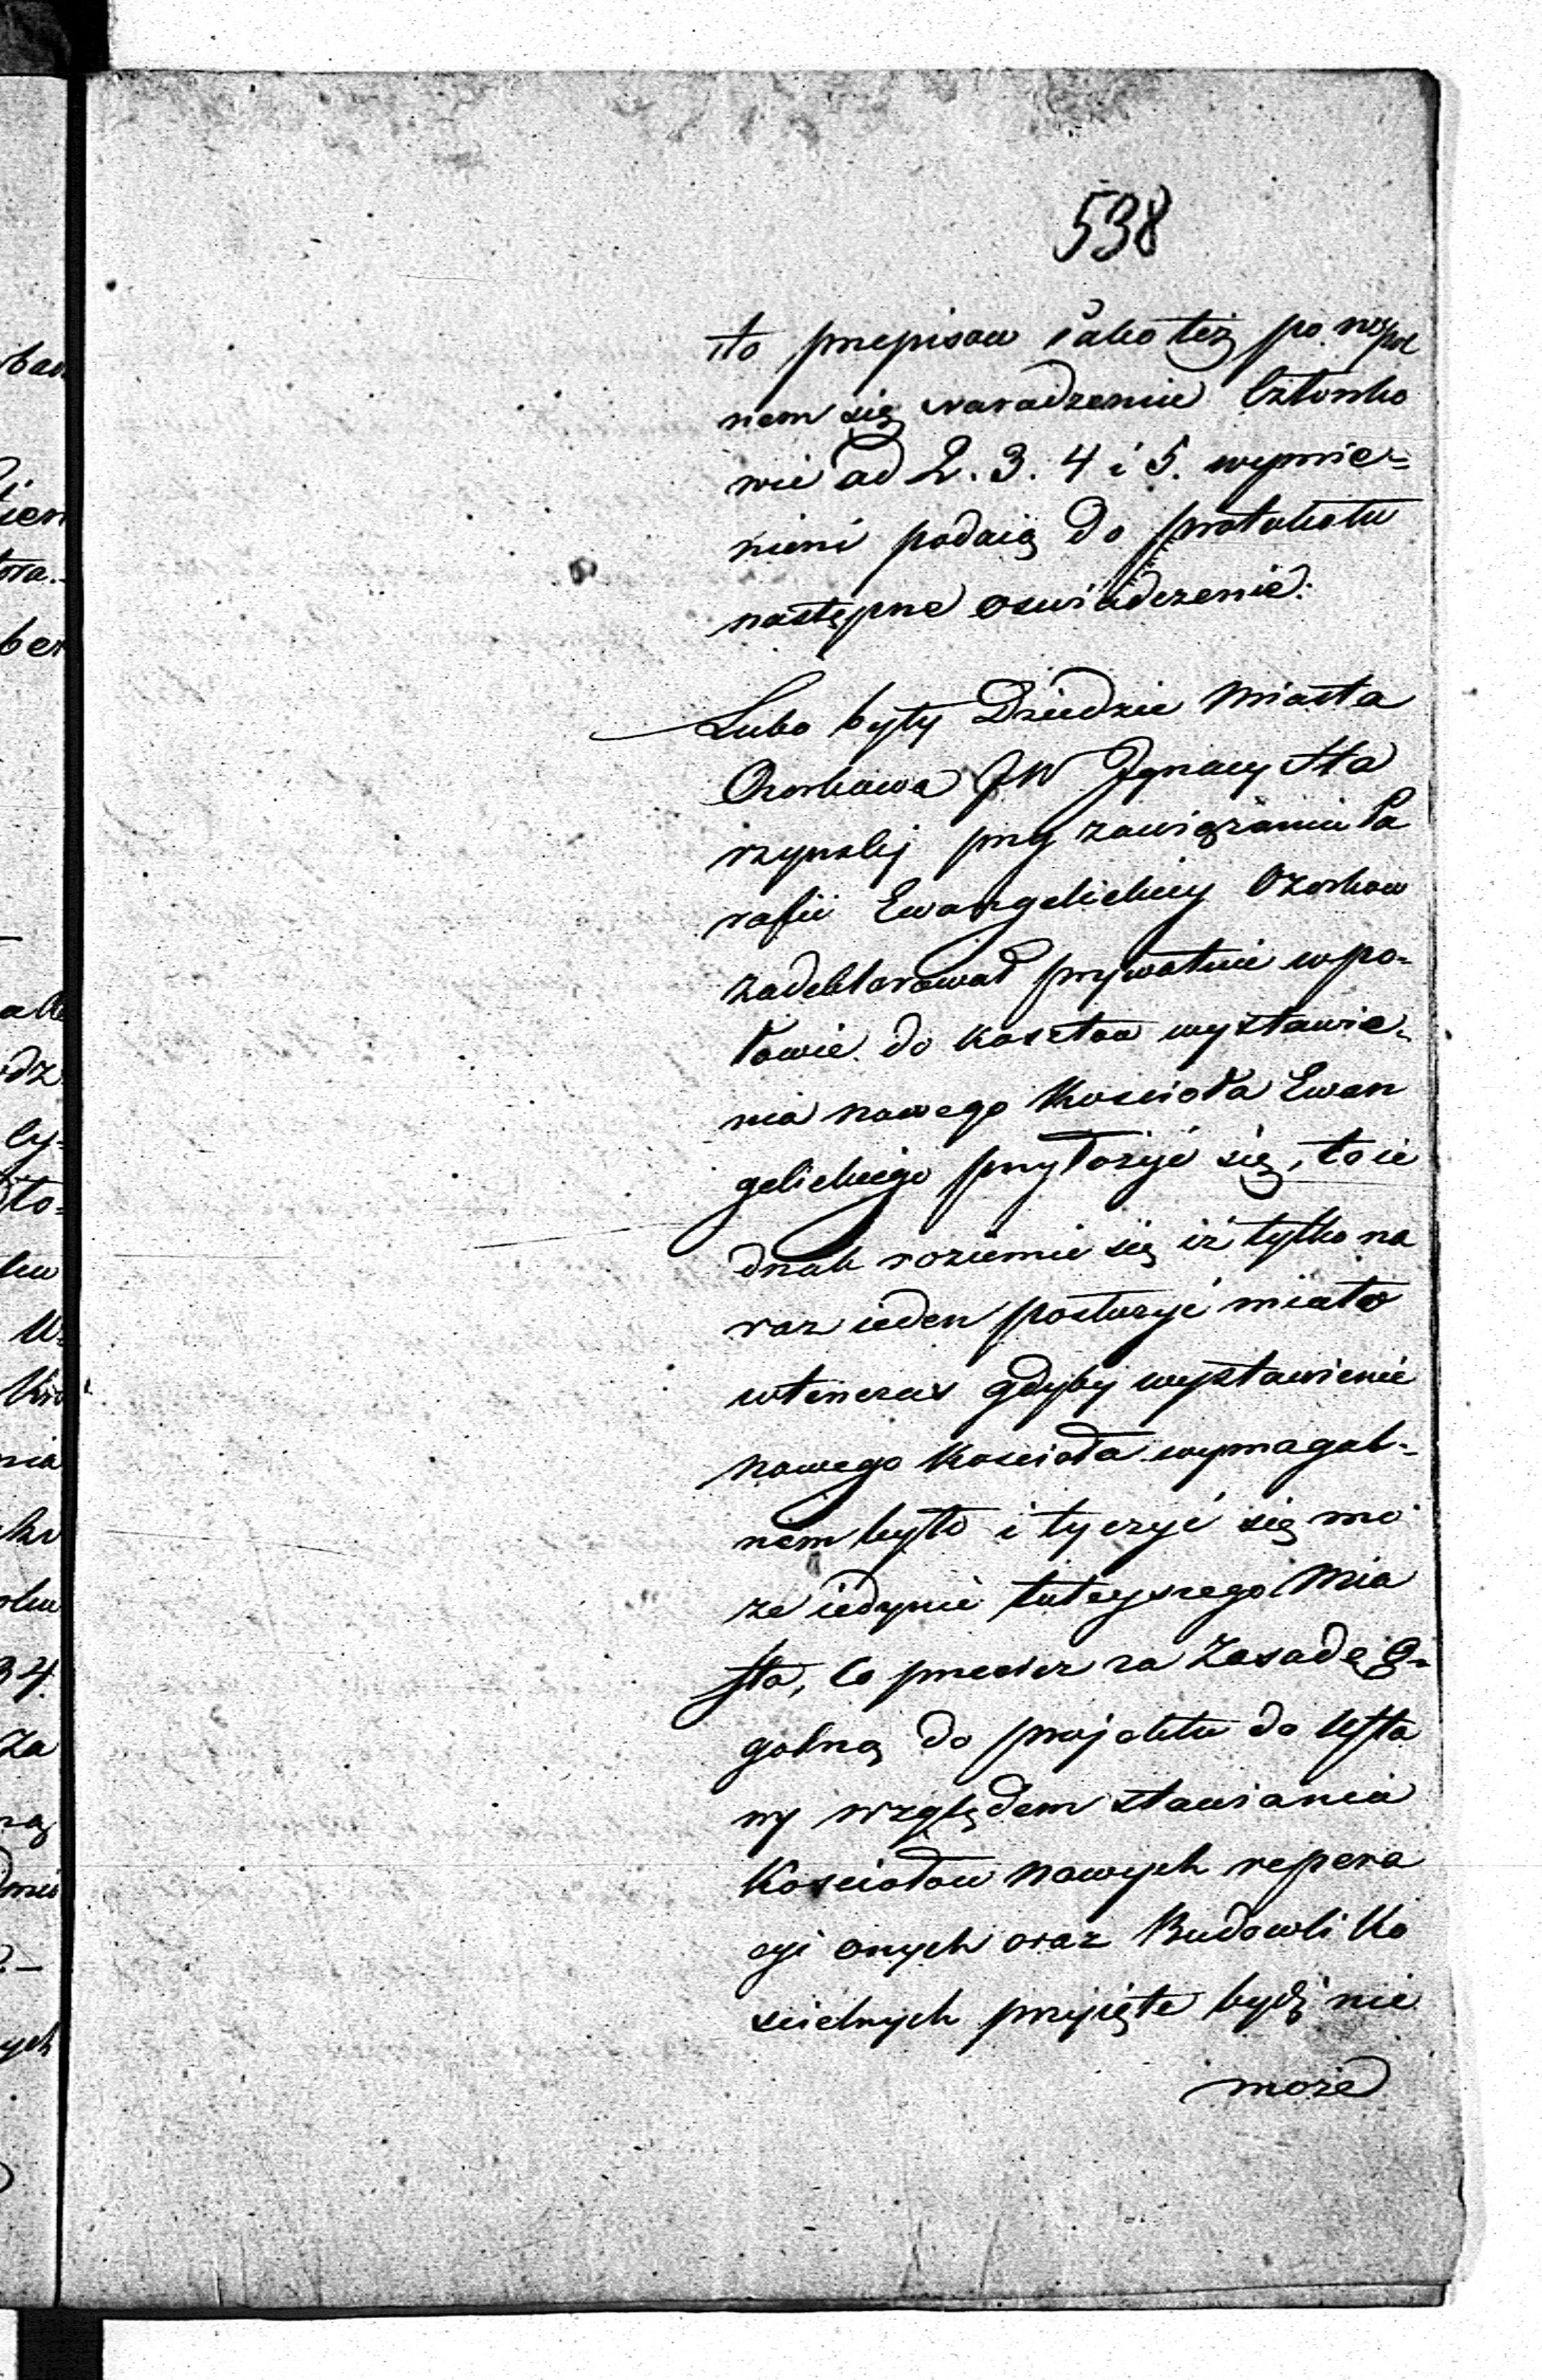 538
sto przepisow iako też po wspol
nem się naradzenie Członko
wie ad 2. 3. 4 i 5. wymie=
nieni podaią do protokołu
następne oswiadczenie:
Lubo były Dziedzic Miasta
Ozorkowa JW Jgnacy Sta
rzynskj przy zawiązaniu Pa
rafii Ewangelickiey Ozorkow
zadeklarował prywatnie w po=
łowie do kosztow wystawie=
nia nowego Koscioła Ewan
gelickiego przyłożyć się, to ie
dnak rozumie się iż tylko na
raz ieden posłużyć miało
wtenczas gdyby wystawienie
nowego Kosciola wymagal=
nem było i tyczyć się mo
że iedynie tuteyszego Mia
sta, co przeciez za Zasadę O=
golną do projektu do Usta
wy względem stawiania
Kosciołow nowych repera
cyi onych oraz Budowli Ko
scielnych przyięte bydź nie
może
bau
ien
tora.
ber
alle
odz
cy=
sto=
ku
U=
nia
34.
Za
ną
dnie
ych